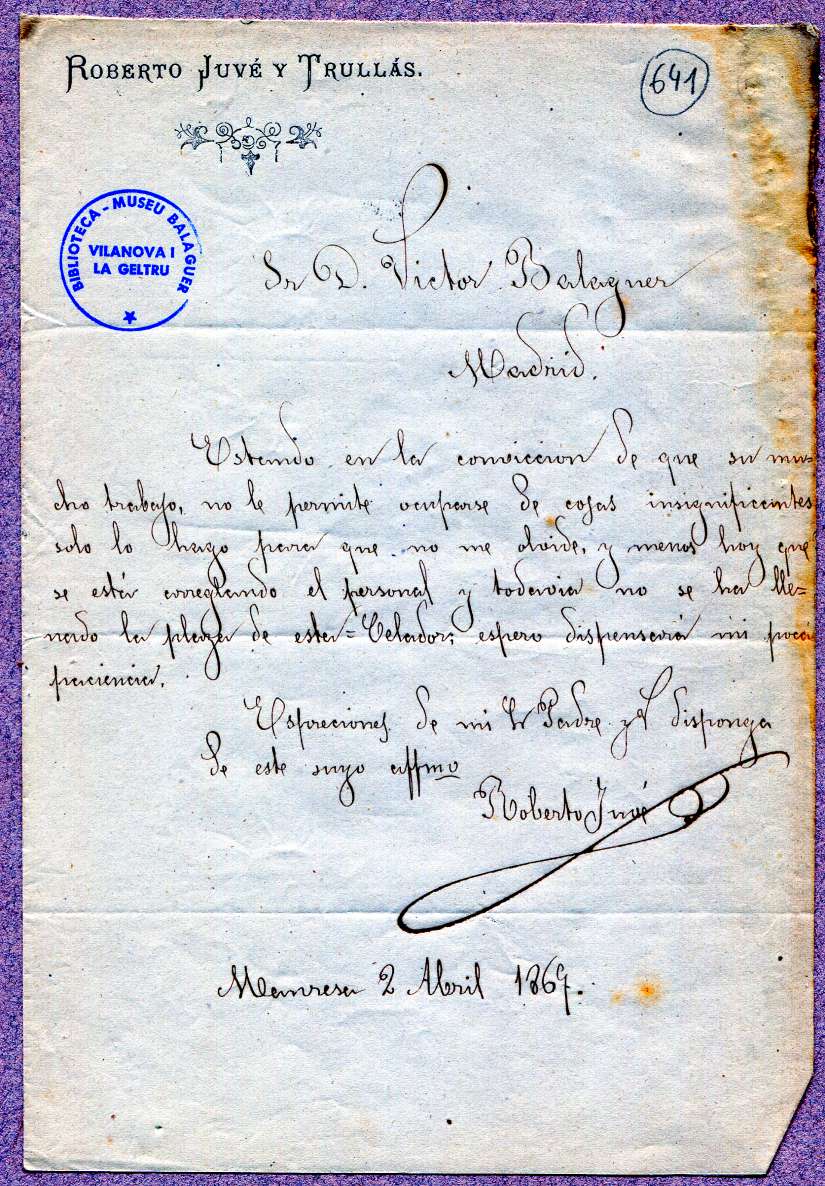 ROBERTO JUVÉ Y TRULLÁS.
641
BIBLIOTECA - MUSEU BALAGUER
VILANOVA I
LA GELTRU
Sr D. Victor Balaguer
Madrid.
Estando en la conviccion de que su mu-
cho trabajo, no le permite ocuparse de cosas insignificantes
solo lo hago para que no me olvide, y menos hoy que
se está arreglando el personal y todavia no se ha lle-
nado la plaza de esta=Celador; espero dispensará mi poca
paciencia.
Espreciones de mi Sr Padre y V disponga
de este suyo affmo
Roberto Juvé
Manresa 2 Abril 1869.